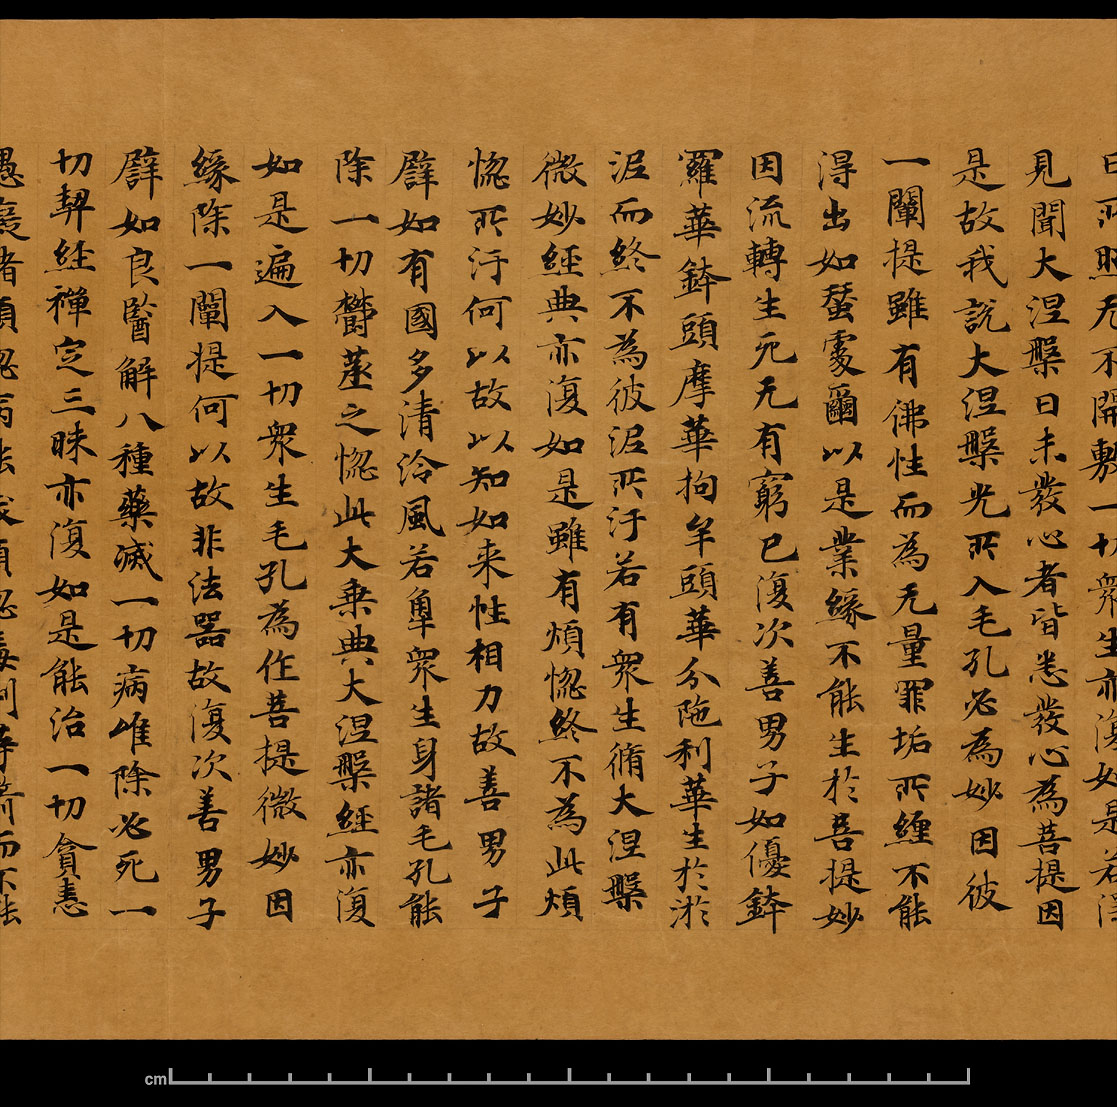 日所照无不開敷一切衆生亦復如是若得
見聞大涅槃日未發心者皆悉發心為菩提因
是故我說大涅槃光所入毛孔必為妙因彼
一闡提雖有佛性而為无量罪垢所纏不能
得出如蚕處璽以是業緣不能生於菩提妙
因流轉生死无有窮已復次善男子如優鉢
羅華鉢頭摩華拘牟頭華分陁利華生於淤
泥而終不為彼泥所汙若有衆生脩大涅槃
微妙經典亦復如是雖有煩惱終不為此煩
惱所汙何以故以知如来性相力故善男子
譬如有國多清冷風若觸衆生身諸毛孔能
除一切欝蒸之惱此大乗典大涅槃經亦復
如是遍入一切衆生毛孔為作菩提微妙因
緣除一闡提何以故非法器故復次善男子
譬如良醫解八種藥滅一切病唯除必死一
切契經禪定三昧亦復如是能治一切貪恚
愚癡諸煩惱病能拔煩惱毒刺等箭而不能
cm